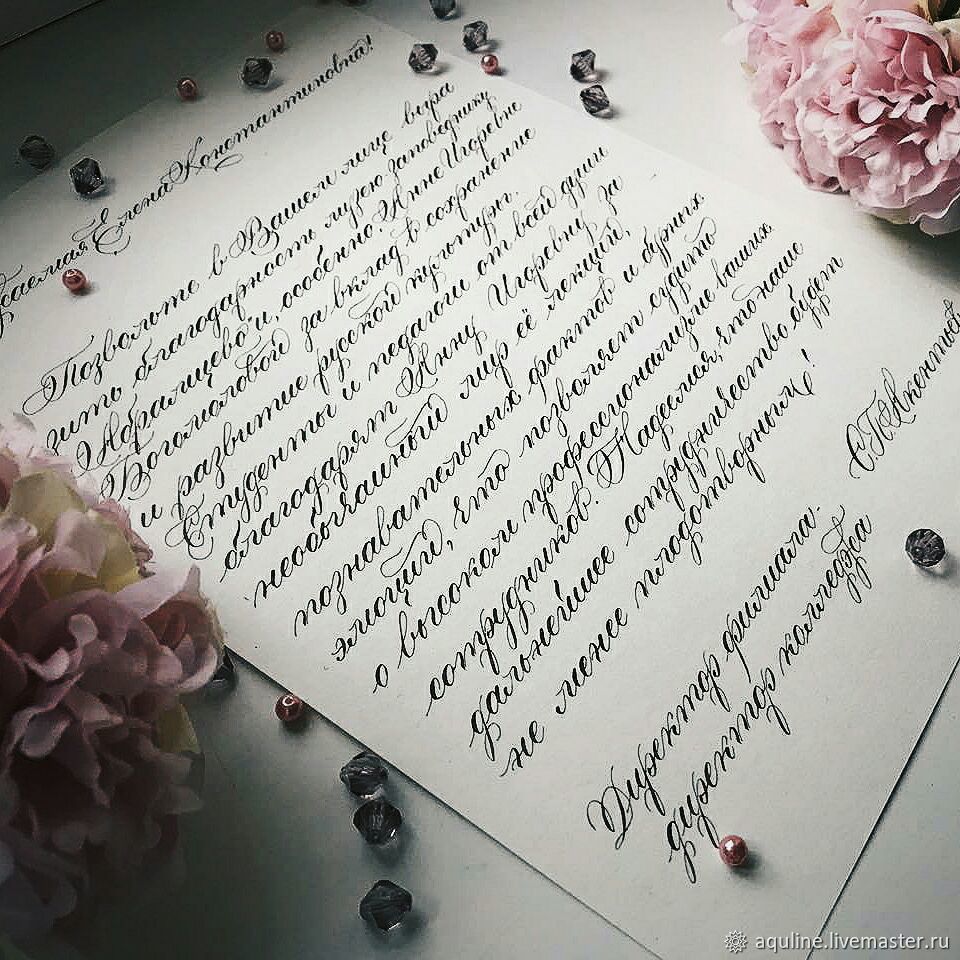 Елена Константиновна!
Позвольте в Вашем лице выра
зить благодарность музею заповеднику
"Абрамцево" и, особенно, Анне Игоревне
Богомоловой за вклад в сохранение
и развитие русской культуры.
Студенты и педагоги от всей души
благодарят Анну Игоревну за
необычайный мир её лекций,
познавательных фактов и бурных
эмоций, что позволяет судить
о высоком профессионализме ваших
сотрудников. Надеемся, что наше
дальнейшее сотрудничество будет
не менее плодотворным!
Директор филиала-
директор колледжа
aquline.livemaster.ru